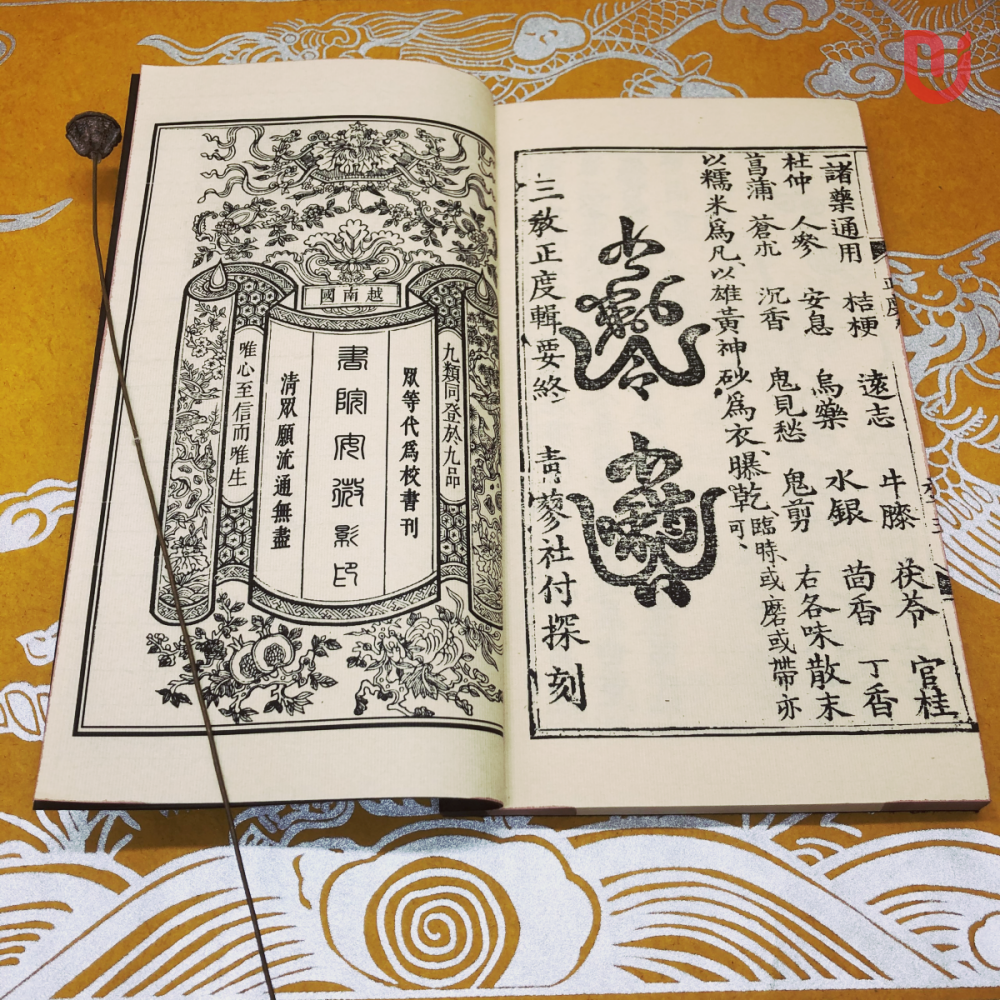 一諸藥通用 桔梗 遠志 牛膝 茯苓 官桂
杜仲 人參 安息 烏藥 水銀 茴香 丁香
菖蒲 蒼朮 沉香 鬼見愁 鬼剪 右各味散末
以糯米爲凡、以雄黃神砂爲衣、曝乾、臨時或磨或帶亦
可、
三教正度輯要終 青蓼社付探刻
越南國
九類同登於九品
眾等代爲校書刊
書院安微影印
清眾願流通無盡
唯心至信而唯生